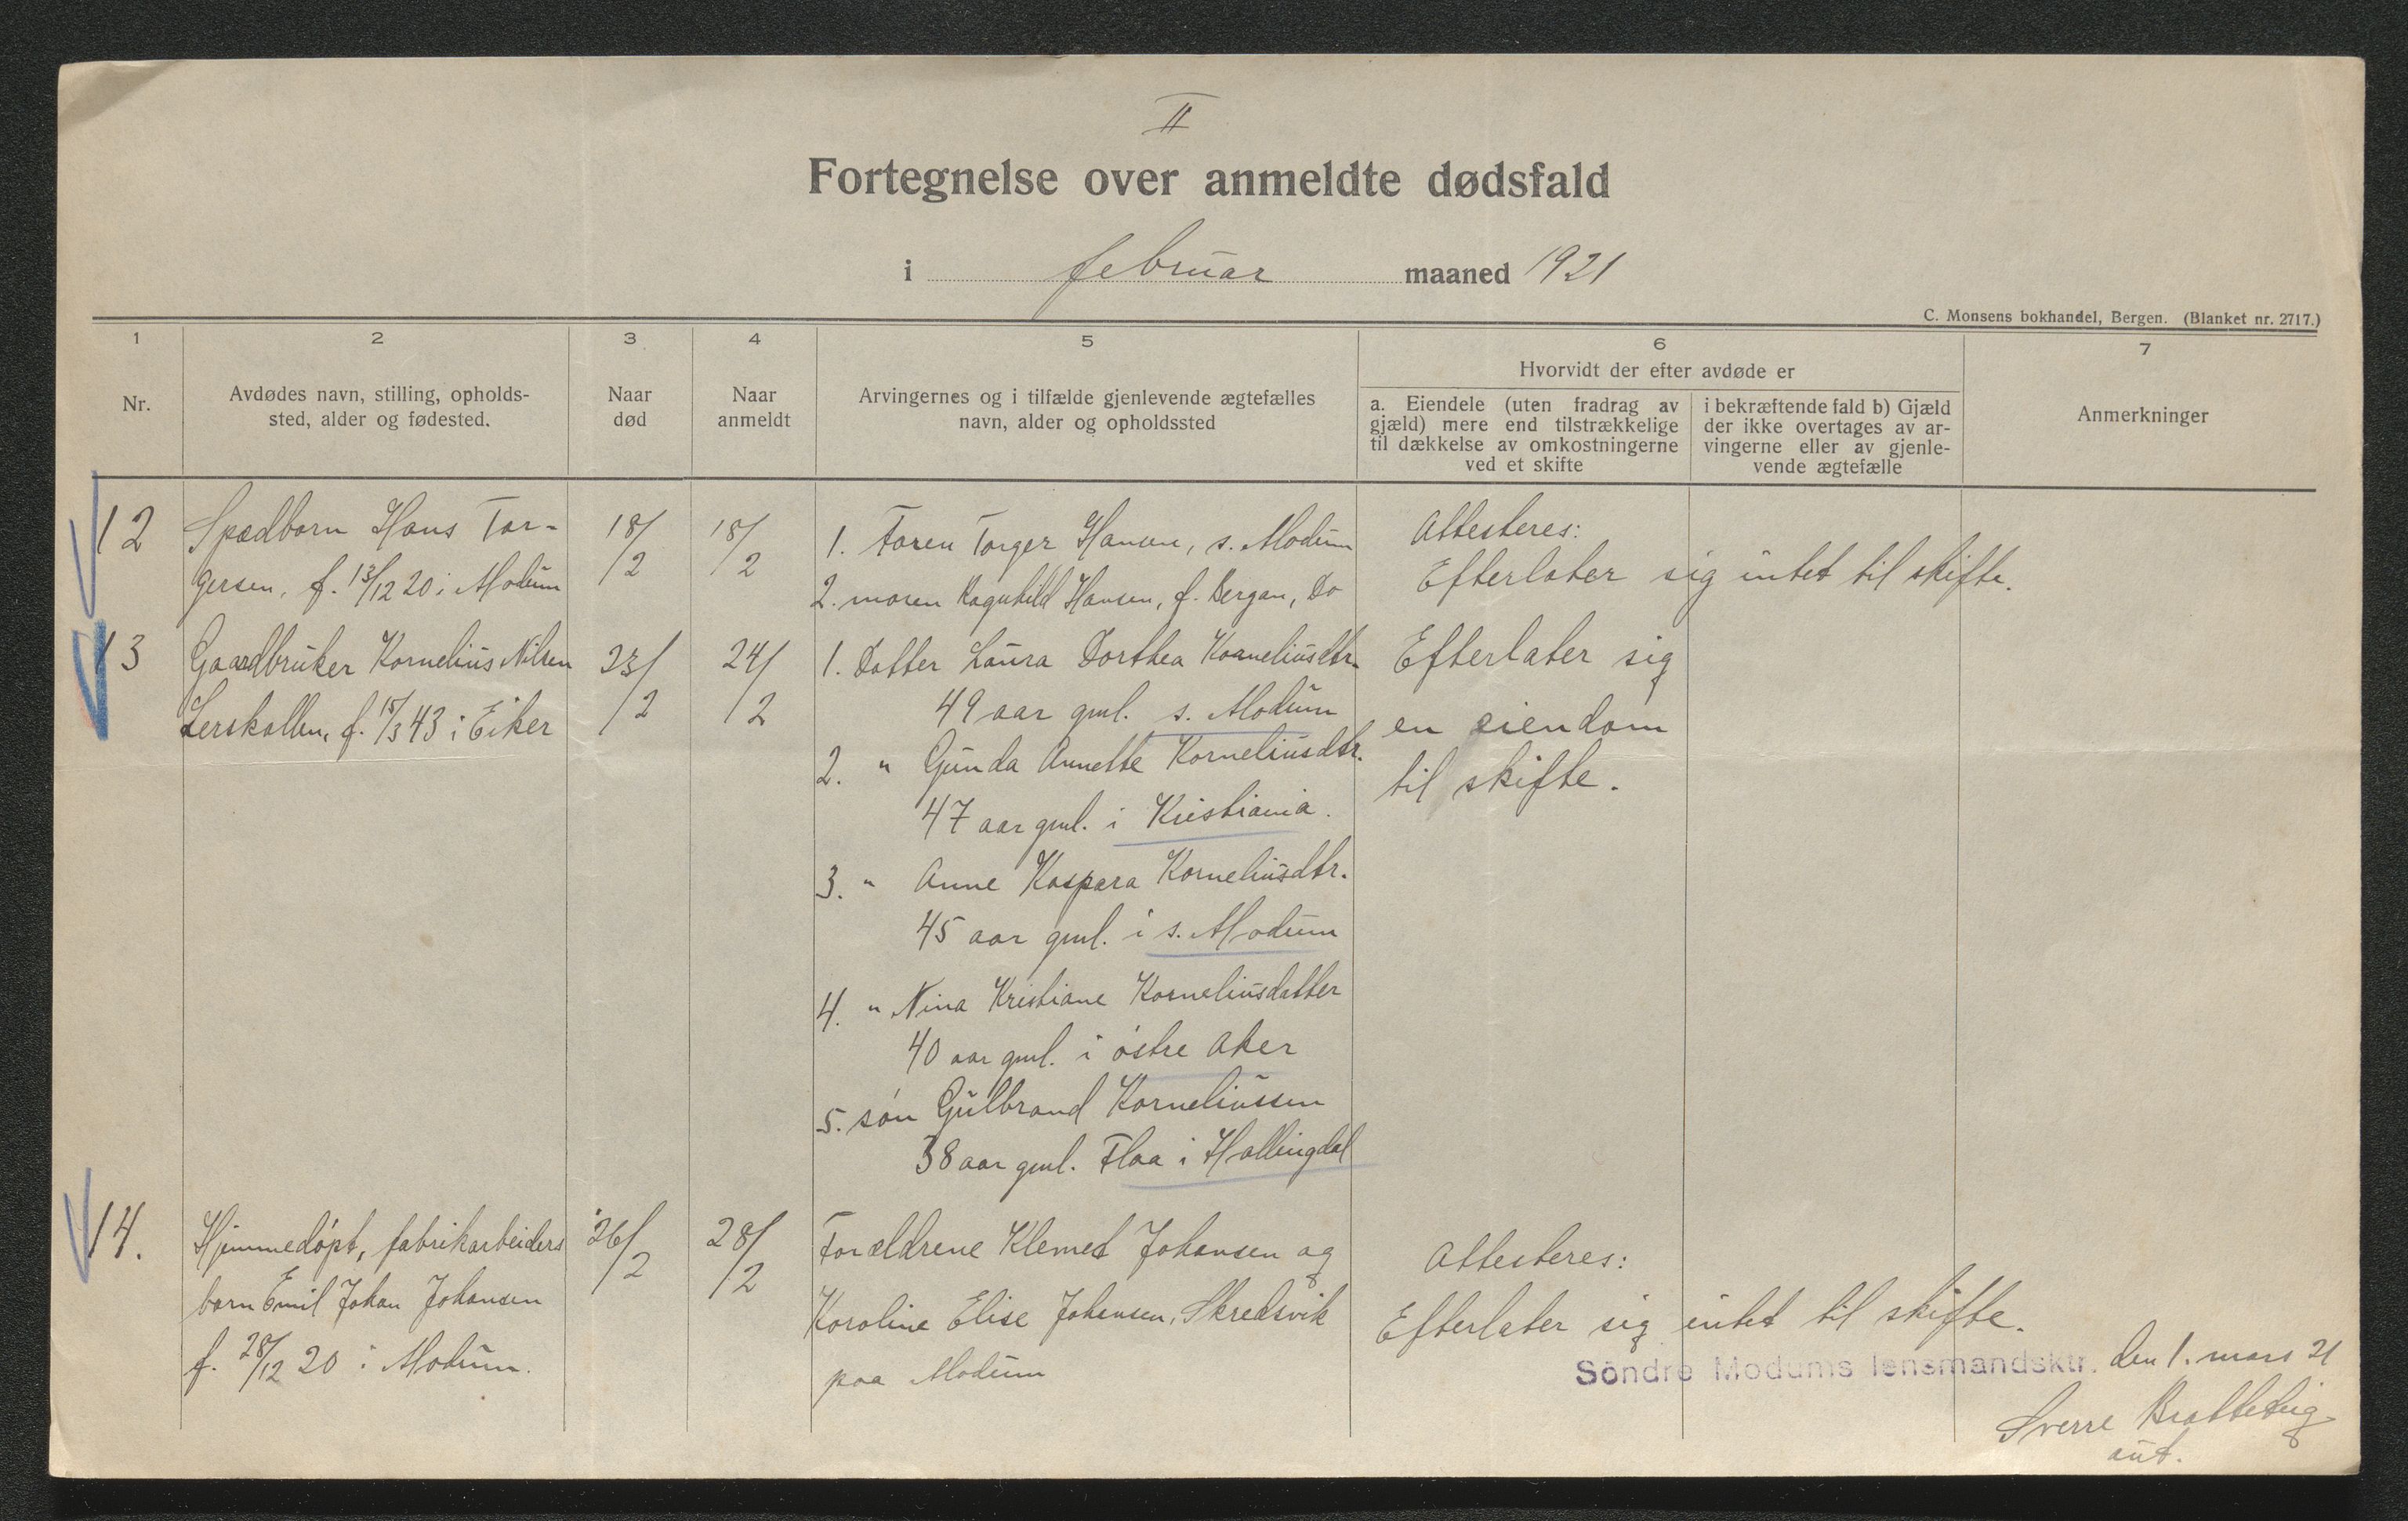 II
Fortegnelse over anmeldte dødsfald
i februar maaned 1921
C. Monsens bokhandel, Bergen. (Blanket nr. 2717.)
1
2
3
4
5
6
7
Nr.
Avdødes navn, stilling, opholds-
sted, alder og fødested.
Naar
død
Naar
anmeldt
Arvingernes og i tilfælde gjenlevende ægtefælles
navn, alder og opholdssted
Hvorvidt der efter avdøde er
a. Eiendele (uten fradrag av
gjæld) mere end tilstrækkelige
til dækkelse av omkostningerne
ved et skifte
i bekræftende fald b) Gjæld
der ikke overtages av ar-
vingerne eller av gjenle-
vende ægtefælle
Anmerkninger
12
Spædbarn Hans Tor-
gersen, f. 13/12 20 i Modum
18/2
18/2
1. Faren Torger Hansen, s. Modum
2. moren Ragnhild Hansen, f. Bergan, Do
Attesteres:
Efterlater sig intet til skifte.
13
Gaardbruker Kornelius Nilsen
Lerskallen, f. 15/3 43 i Eiker
23/2
24/2
1. Datter Laura Dorthea Korneliusdtr.
49 aar gml. s. Modum
2. " Gunda Annette Korneliusdtr.
47 aar gml. i Kristiania.
3. " Anne Kaspara Korneliusdtr.
45 aar gml. i s. Modum
4. " Nina Kristiane Korneliusdatter
40 aar gml. i østre Aker
5. søn Gulbrand Korneliussen
38 aar gml. Flaa i Hallingdal
Efterlater sig
en eiendom
til skifte.
14.
Hjemmedøpt, fabrikarbeiders
barn Emil Johan Johansen
f. 28/12 20 i Modum.
26/2
28/2
Forældrene Klemet Johansen og
Karoline Elise Johansen, Skredsvik
paa Modum
Attesteres:
Efterlater sig intet til skifte.
Söndre Modums lensmandsktr. den 1. mars 21
Sverre Bratteteig
aut.